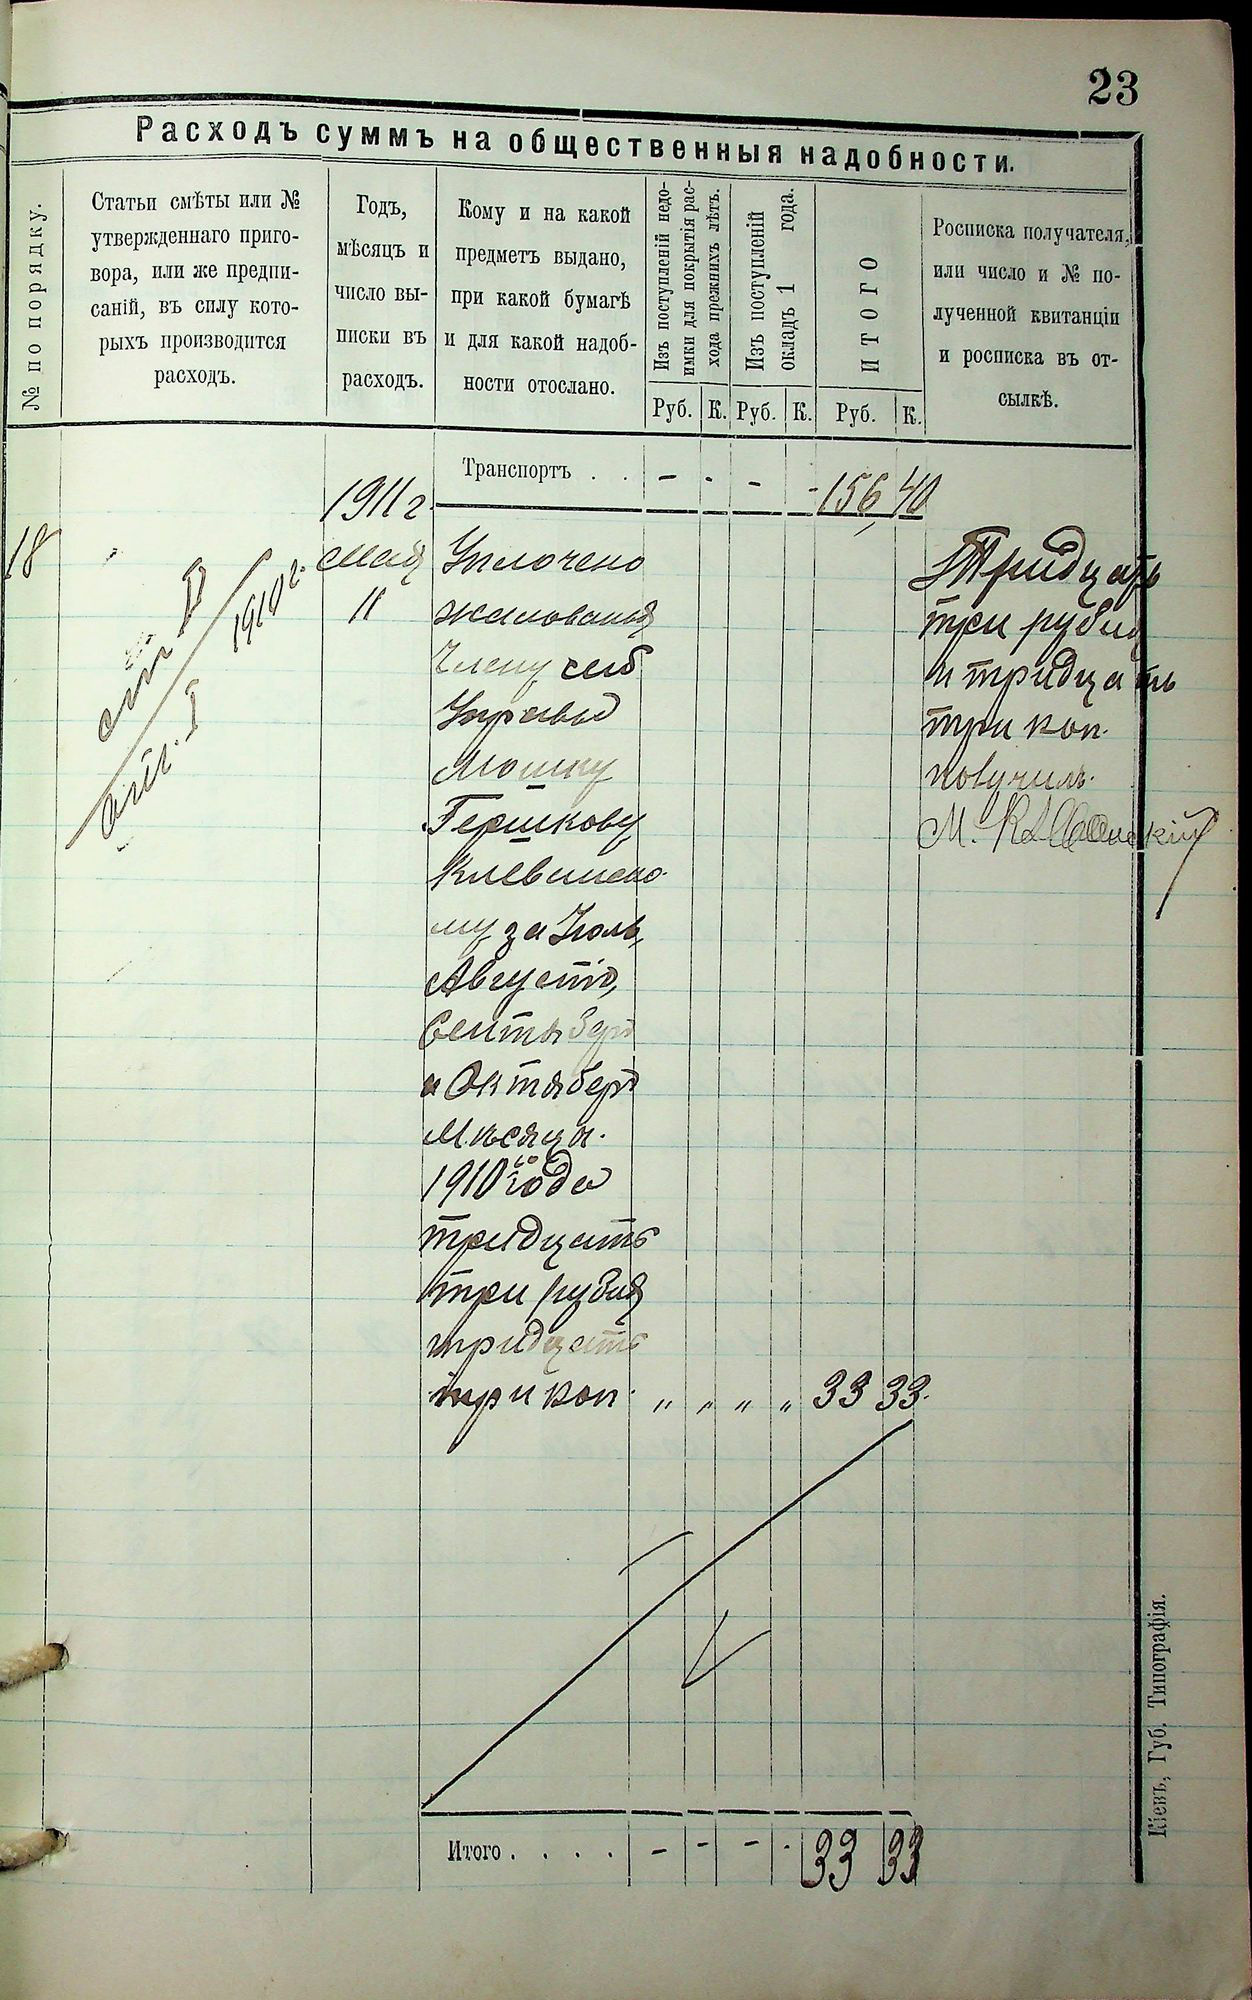 23
Расходъ суммъ на общественныя надобности.
№ по порядку.
Статьи смѣты или №
утвержденнаго приго-
вора, или же предпи-
саній, въ силу кото-
рыхъ производится
расходъ.
Годъ,
мѣсяцъ и
число вы-
писки въ
расходъ.
Кому и на какой
предметъ выдано,
при какой бумагѣ
и для какой надоб-
ности отослано.
Изъ поступленій недо-
имки для покрытія рас-
хода прежнихъ лѣтъ.
Изъ поступленій
окладъ 1 года.
ИТОГО
Росписка получателя,
или число и № по-
лученной квитанціи
и росписка въ от-
сылкѣ.
Руб. К. Руб. К. Руб. К.
Транспортъ . . - - - - 156 40
1911 г.
18
Мая
11
ст. II
ст. I
1910 г.
Уплочено
жалованья
Члену
Управы
Мошку
Гершкову
Клебанско-
му за Іюль,
Августъ,
Сентябрь
и Октябрь
Мѣсяцы
1910 го года
тридцать
три рубля
тридцать
три коп. " " " " 33 33.
Тридцать
три рубля
и тридцать
три коп.
получилъ.
М. Клебанскій
Итого . . . . - - - - 33 33
Кіевъ, Губ. Типографія.